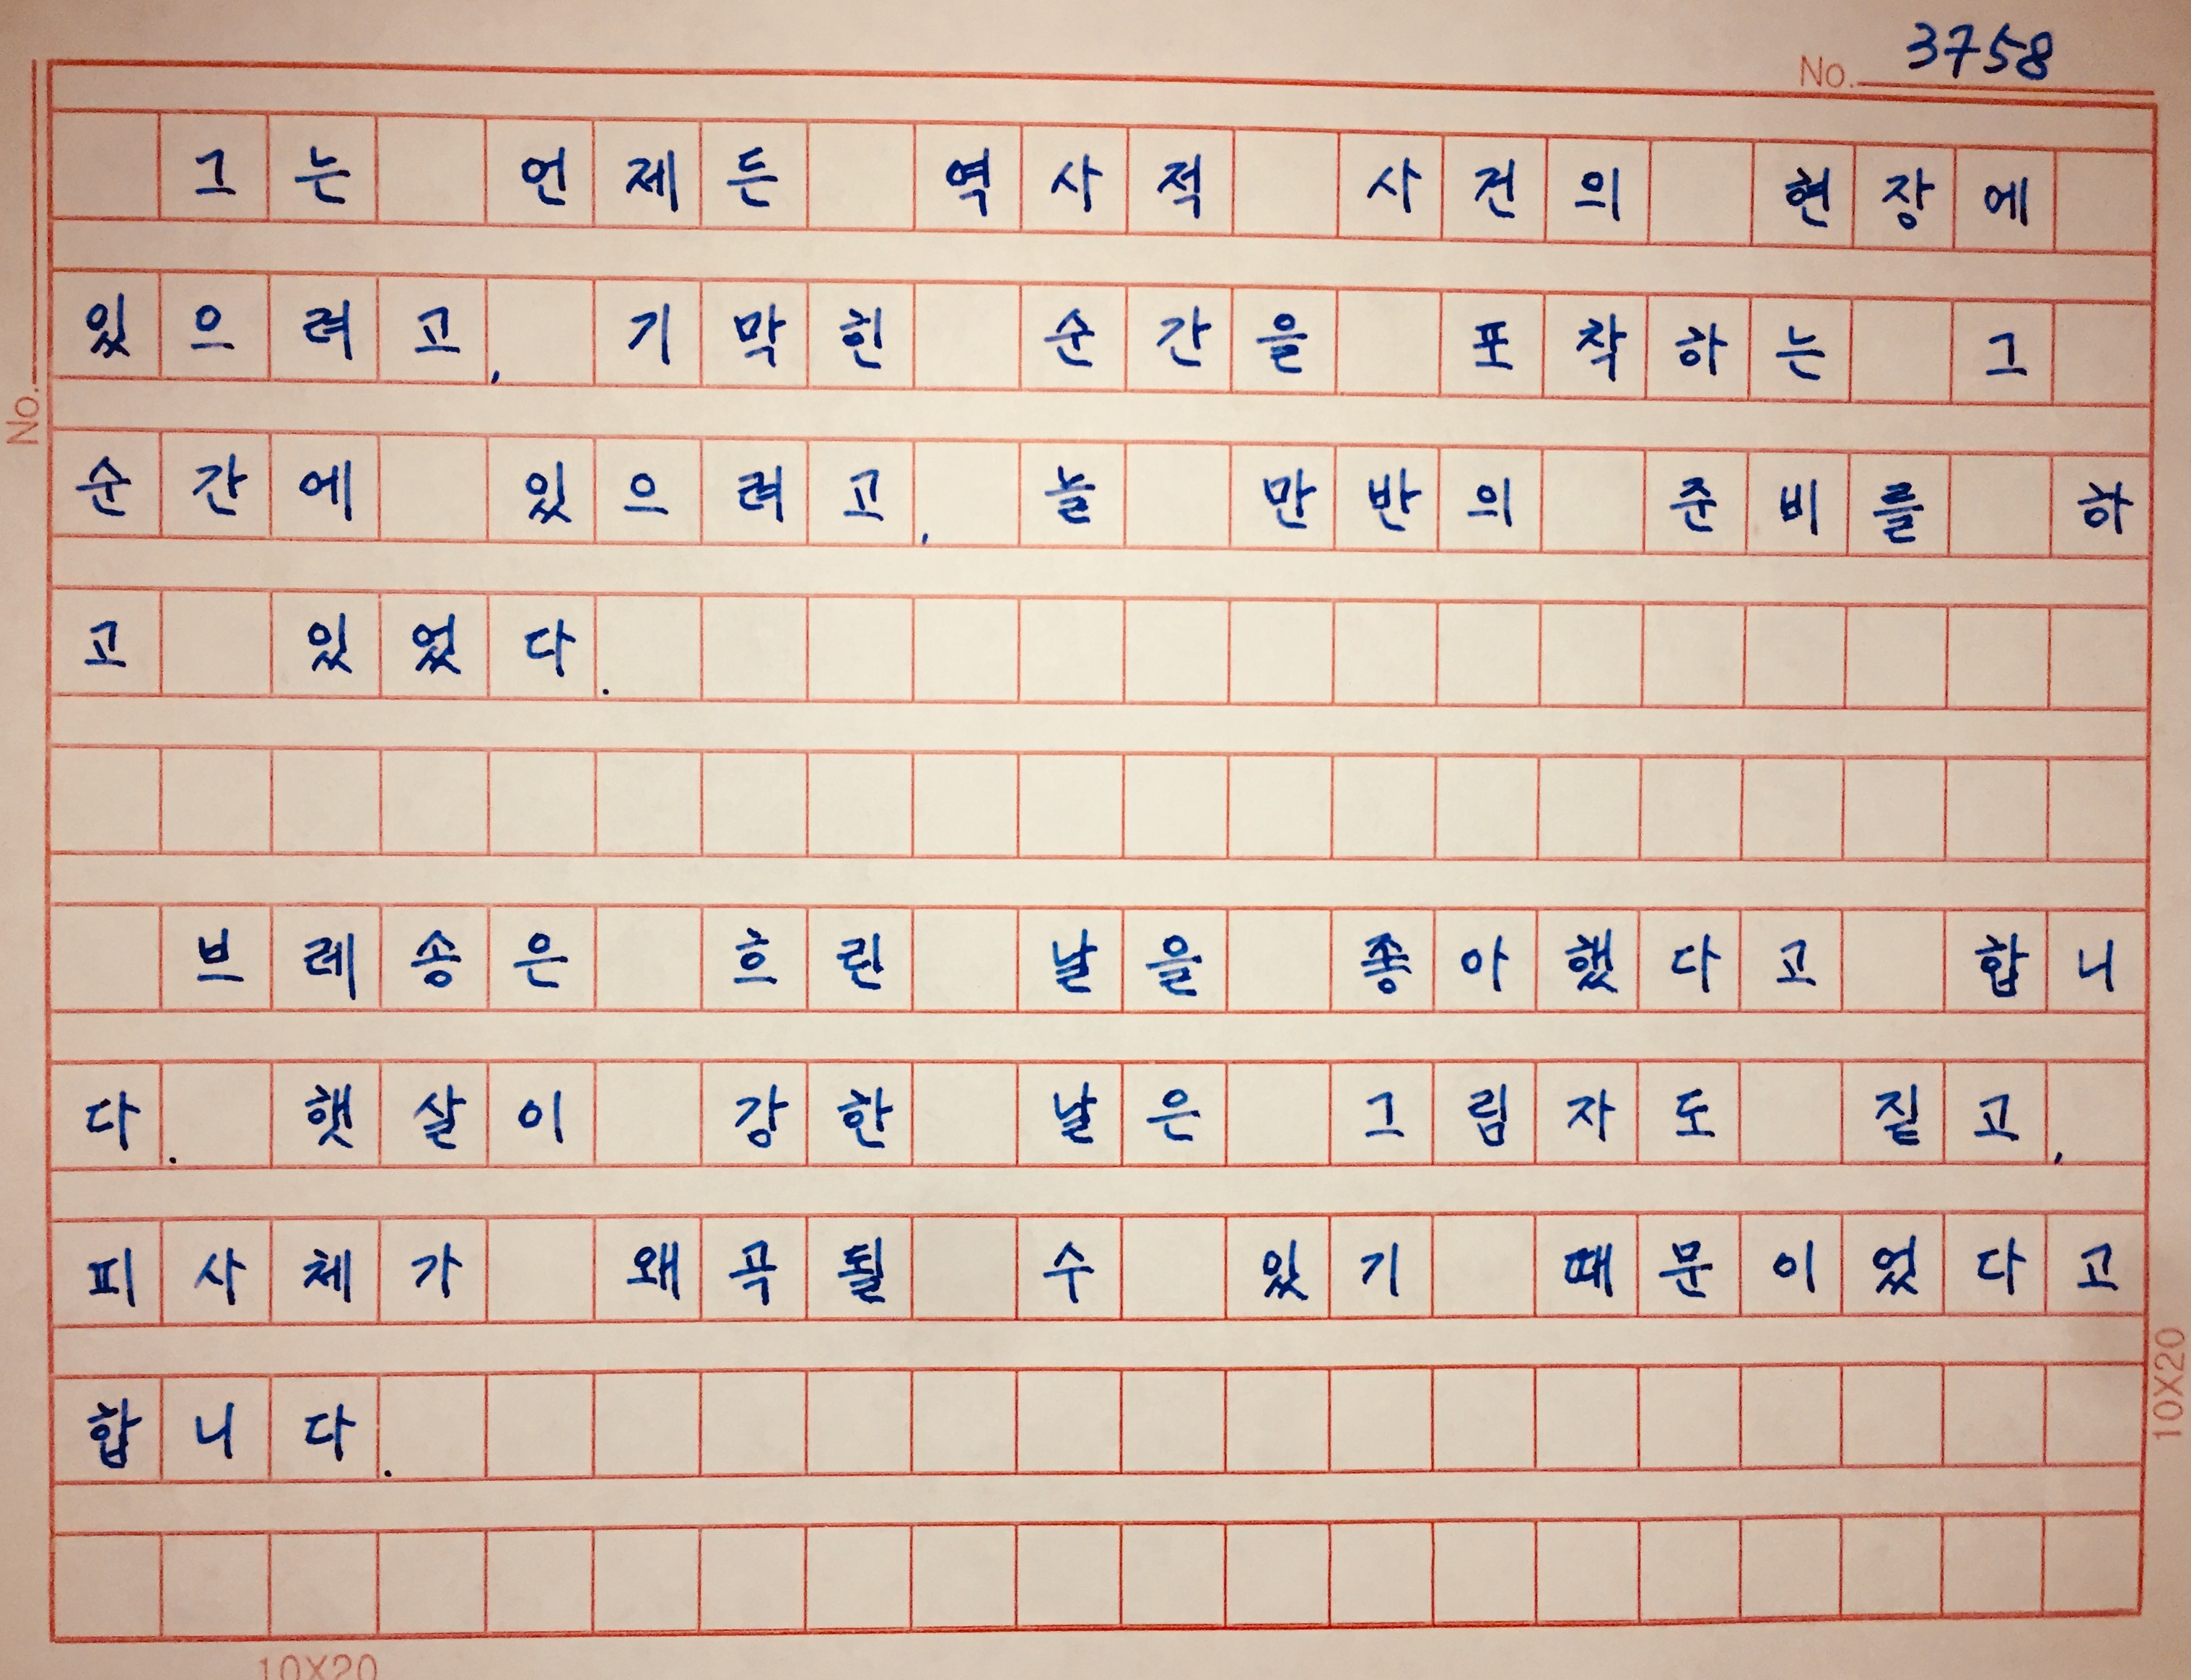 No. 3758
그는 언제든 역사적 사건의 현장에
있으려고, 기막힌 순간을 포착하는 그
순간에 있으려고, 늘 만반의 준비를 하
고 있었다.
브레송은 흐린 날을 좋아했다고 합니
다. 햇살이 강한 날은 그림자도 짙고,
피사체가 왜곡될 수 있기 때문이었다고
합니다.
No.
10X20
10X20